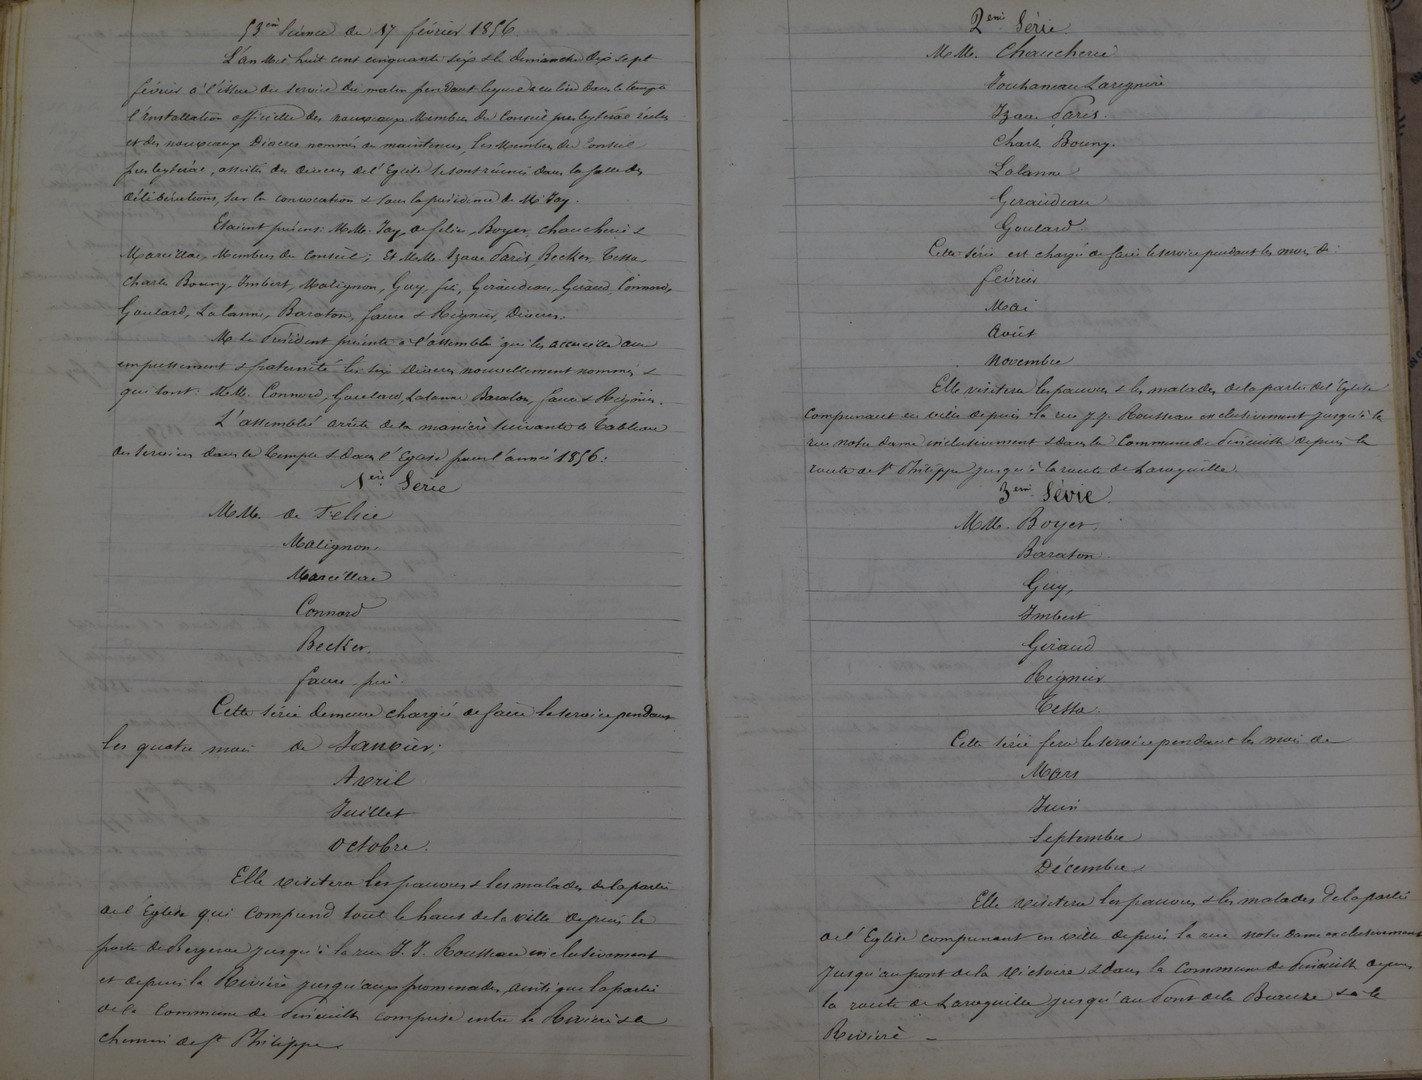 53eme Séance du 17 février 1856
L'an Mil huit cent cinquante six & le dimanche dix sept
février à l'issue du service du matin pendant lequel a eu lieu dans le temple
l'installation officielle des nouveaux Membres du Conseil presbytéral élus
et des nouveaux Diacres nommés ou maintenus, les Membres du Conseil
presbytéral, assistés des diacres de l'Eglise se sont réunis dans la salle des
délibérations, sur la convocation & sous la présidence de Mr Jay.
Etaient présens: M.M. Jay, de félice, Boyer, Chaucherie &
Marcillac, Membres du Conseil; Et M.M. Izaac Paris, Becker, Tessa,
Charle Bourg, Imbert, Matignon, Guy, fils, Geraudeau, Giraud, Connord,
Goulard, Lalanne, Baraton, faure & Reignier, Diacres.
M. le Président présente à l'assemblée qui les accueille avec
empressement & fraternité les six diacres nouvellement nommés &
qui sont: M.M. Connord, Goulard, Lalanne Baraton, faure & Reignier.
L'assemblée arrête de la manière suivante le tableau
du service dans le Temple & dans l'Eglise pour l'année 1856:
1ère Serie
M.M. de Felice
Matignon.
Marcillac
Connord
Becker.
faure père.
Cette série demeure chargée de faire le service pendant
les quatre mois de Janvier;
Avril
Juillet
Octobre.
Elle visitera les pauvres & les malades de la partie
de l'Eglise qui comprend tout le haut de la ville depuis la
porte de Bergerac jusqu'à la rue J. J. Rousseau inclusivement
et depuis la Rivière jusqu'aux promenades, ainsi que la partie
de la Commune de Pineuilh comprise entre la Rivière & le
chemin de St Philippe.
2eme Série
M.M. Chaucherie
Jouhaneau Laregnère
Izaac Paris.
Charle Bourg.
Lalanne
Geraudeau
Goulard
Cette série est chargée de faire le service pendant les mois de:
février
Mai
Août
Novembre
Elle visitera les pauvres & les malades de la partie de l'Eglise
comprenant en ville depuis la rue J. J. Rousseau exclusivement jusqu'à la
rue notre dame inclusivement & dans la Commune de Pineuilh depuis la
route de St Philippe jusqu'à la route de Laroquille.
3eme Série.
M.M. Boyer
Baraton
Guy,
Imbert
Giraud
Reignier
Tessa.
Cette série fera le service pendant les mois de
Mars
Juin
Septembre
Décembre
Elle visitera les pauvres & les malades de la partie
de l'Eglise comprenant en ville depuis la rue notre dame exclusivement
jusqu'au pont de la Victoire & dans la Commune de Pineuilh depuis
la route de Laroquille jusqu'au Pont de la Beauze & à la
Rivière –